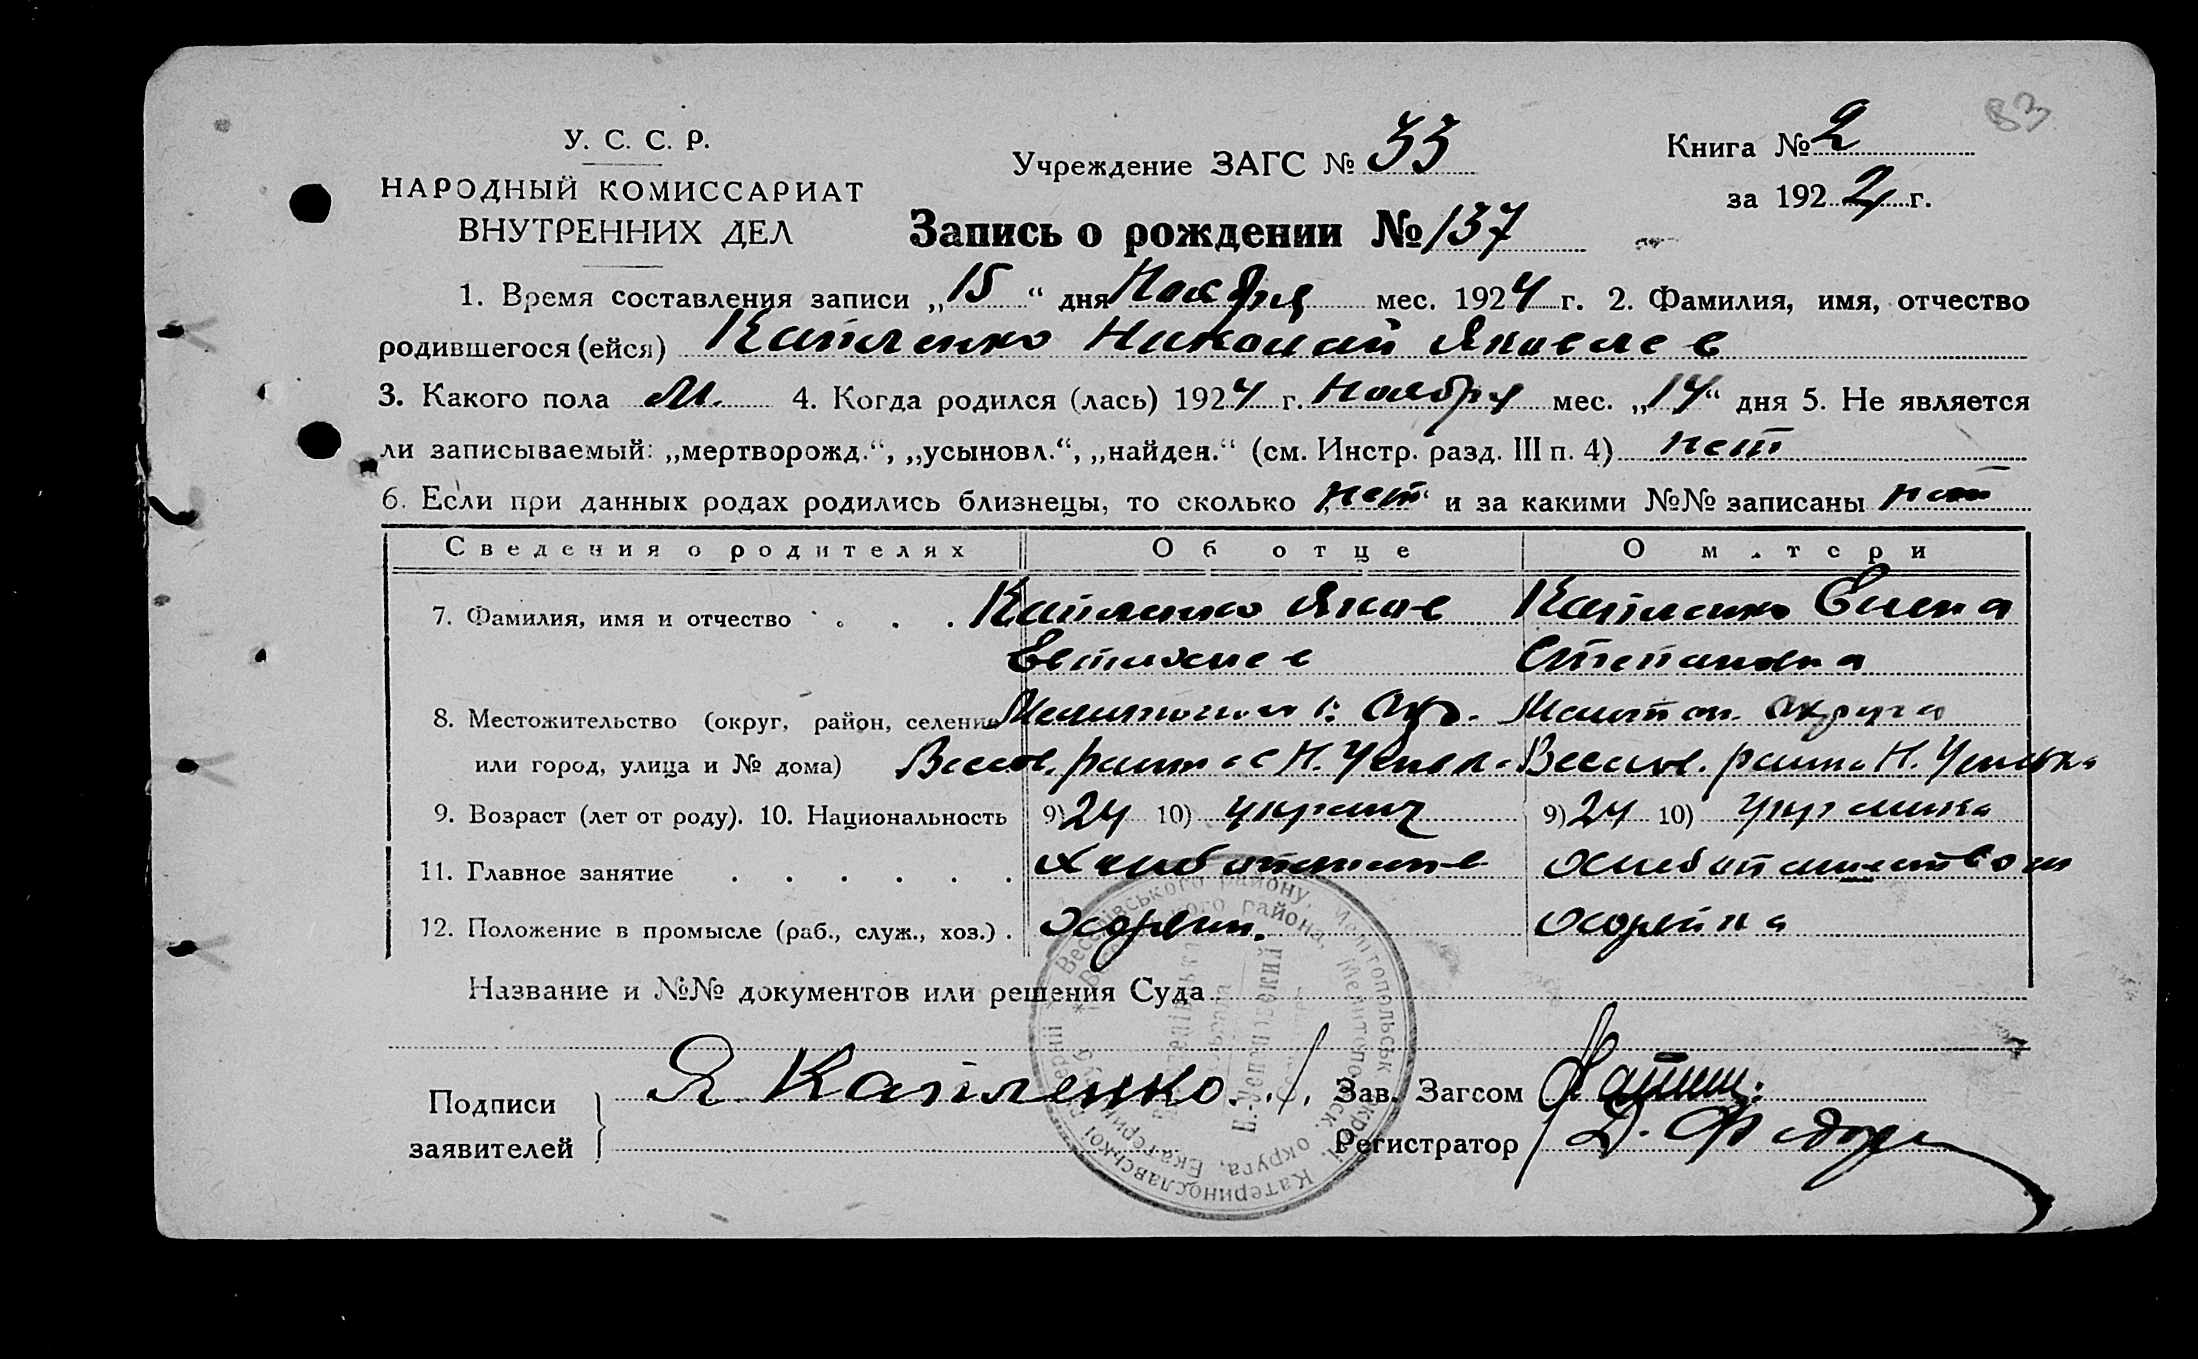 83
У. С. С. Р.
НАРОДНЫЙ КОМИССАРИАТ
ВНУТРЕННИХ ДЕЛ
Учреждение ЗАГС № 33
Книга № 2
за 1924 г.
Запись о рождении № 137
1. Время составления записи „15“ дня Ноября мес. 1924 г. 2. Фамилия, имя, отчество
родившегося (ейся) Капленко Николай Яковлев
3. Какого пола М. 4. Когда родился (лась) 1924 г. Ноября мес. „14“ дня 5. Не является
ли записываемый: „мертворожд.“, „усыновл.“, „найден.“ (см. Инстр. разд. III п. 4) нет
6. Если при данных родах родились близнецы, то сколько нет и за какими №№ записаны нет
Сведения о родителях Об отце О матери
7. Фамилия, имя и отчество . . . . Капленко Яков Капленко Елена
Евтихиев Степановна
8. Местожительство (округ, район, селение Окр. Мелитоп. округа
или город, улица и № дома) Весел. района с Н. Весел. района Н.
9. Возраст (лет от роду). 10. Национальность 9) 24 10) украинц 9) 24 10) украинка
11. Главное занятие . . . . . . хлебопашест хлебопашеством
12. Положение в промысле (раб., служ., хоз.) .
Название и №№ документов или решения Суда
Подписи
заявителей
Я Капленко
Зав. Загсом
Регистратор Д.
Веселівського району, Мелітопольськ. округи, Катеринославської губернії
района, Мелитопольск. округа, Екатерин